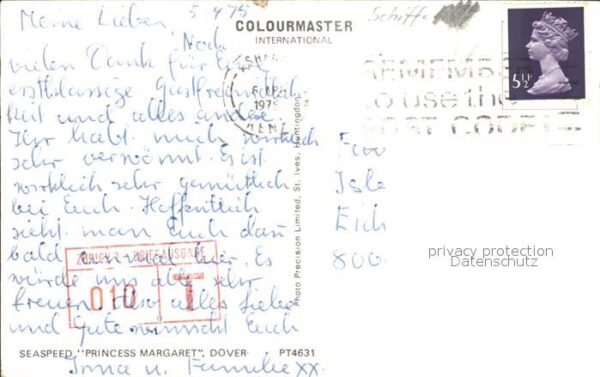 Meine Lieben, 5 4 75
Noch
vielen Dank für Eure
erstklassige Gastfreundlich-
keit und alles andere
Ihr habt mich wirklich
sehr verwöhnt. Es ist
wirklich sehr gemütlich
bei Euch. Hoffentlich
sieht man Euch dann
bald einmal hier. Es
würde uns alle sehr
freuen. Also alles Liebe
und Gute wünscht Euch
Irma u. Familie xx.
SEASPEED "PRINCESS MARGARET", DOVER PT4631
COLOURMASTER
INTERNATIONAL
Photo Precision Limited, St. Ives, Huntingdon
Schiffe
5½P
1975
REMEMBER
to use the
POST CODE
Isle
Eich
800
privacy protection
Datenschutz
ZÜRICH BRIEFAUSGABE
010 T